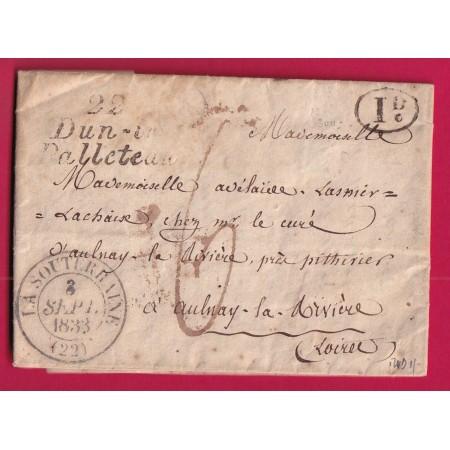 22
Dun-le
Palleteau
1 D
Mademoiselle
Mademoiselle adélaïde Lasnier=
=Lachaise chez mr. le curé
d'aulnay-la Rivière, près pithivier
6
à aulnay-la-Rivière
(Loiret
LA SOUTERRAINE
3
SEPT.
1833
(22)